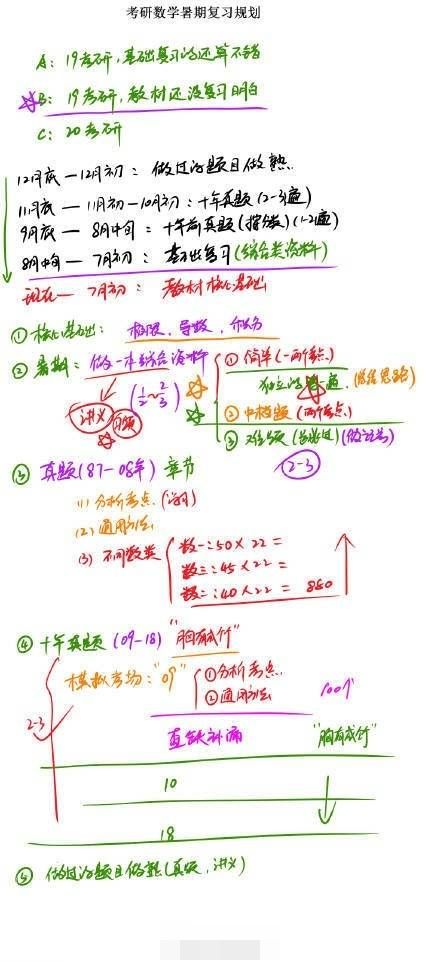 考研数学暑期复习规划
A: 19考研,基础复习的还算不错
B: 19考研,教材还没复习明白
C: 20考研
12月底—12月初: 做过的题目做熟.
11月底—11月初—10月初: 十年真题(2-3遍)
9月底—8月中旬: 十年前真题(按数)(1-2遍)
8月中旬—7月初: 基础复习(综合类资料)
现在—7月初: 教材核心基础
① 核心基础: 极限、导数、积分
② 暑期: 做一本综合资料
(1/2~2/3)
讲义
① 简单(一两个点)
独立的一遍.(总结思路)
② 中档题(两个点.)
③
2-3
③ 真题(87-08年) 章节
(1) 分析考点.
(2) 通用方法
(3) 不同数类
数一:50×22=
数三:45×22=
数二:40×22= 880
④ 十年真题(09-18) "胸有成竹"
模拟考场:"09"
① 分析考点.
② 通用方法
100个
2-3
查缺补漏
"胸有成竹"
10
18
⑤ 做过的题目做熟(真题,讲义)